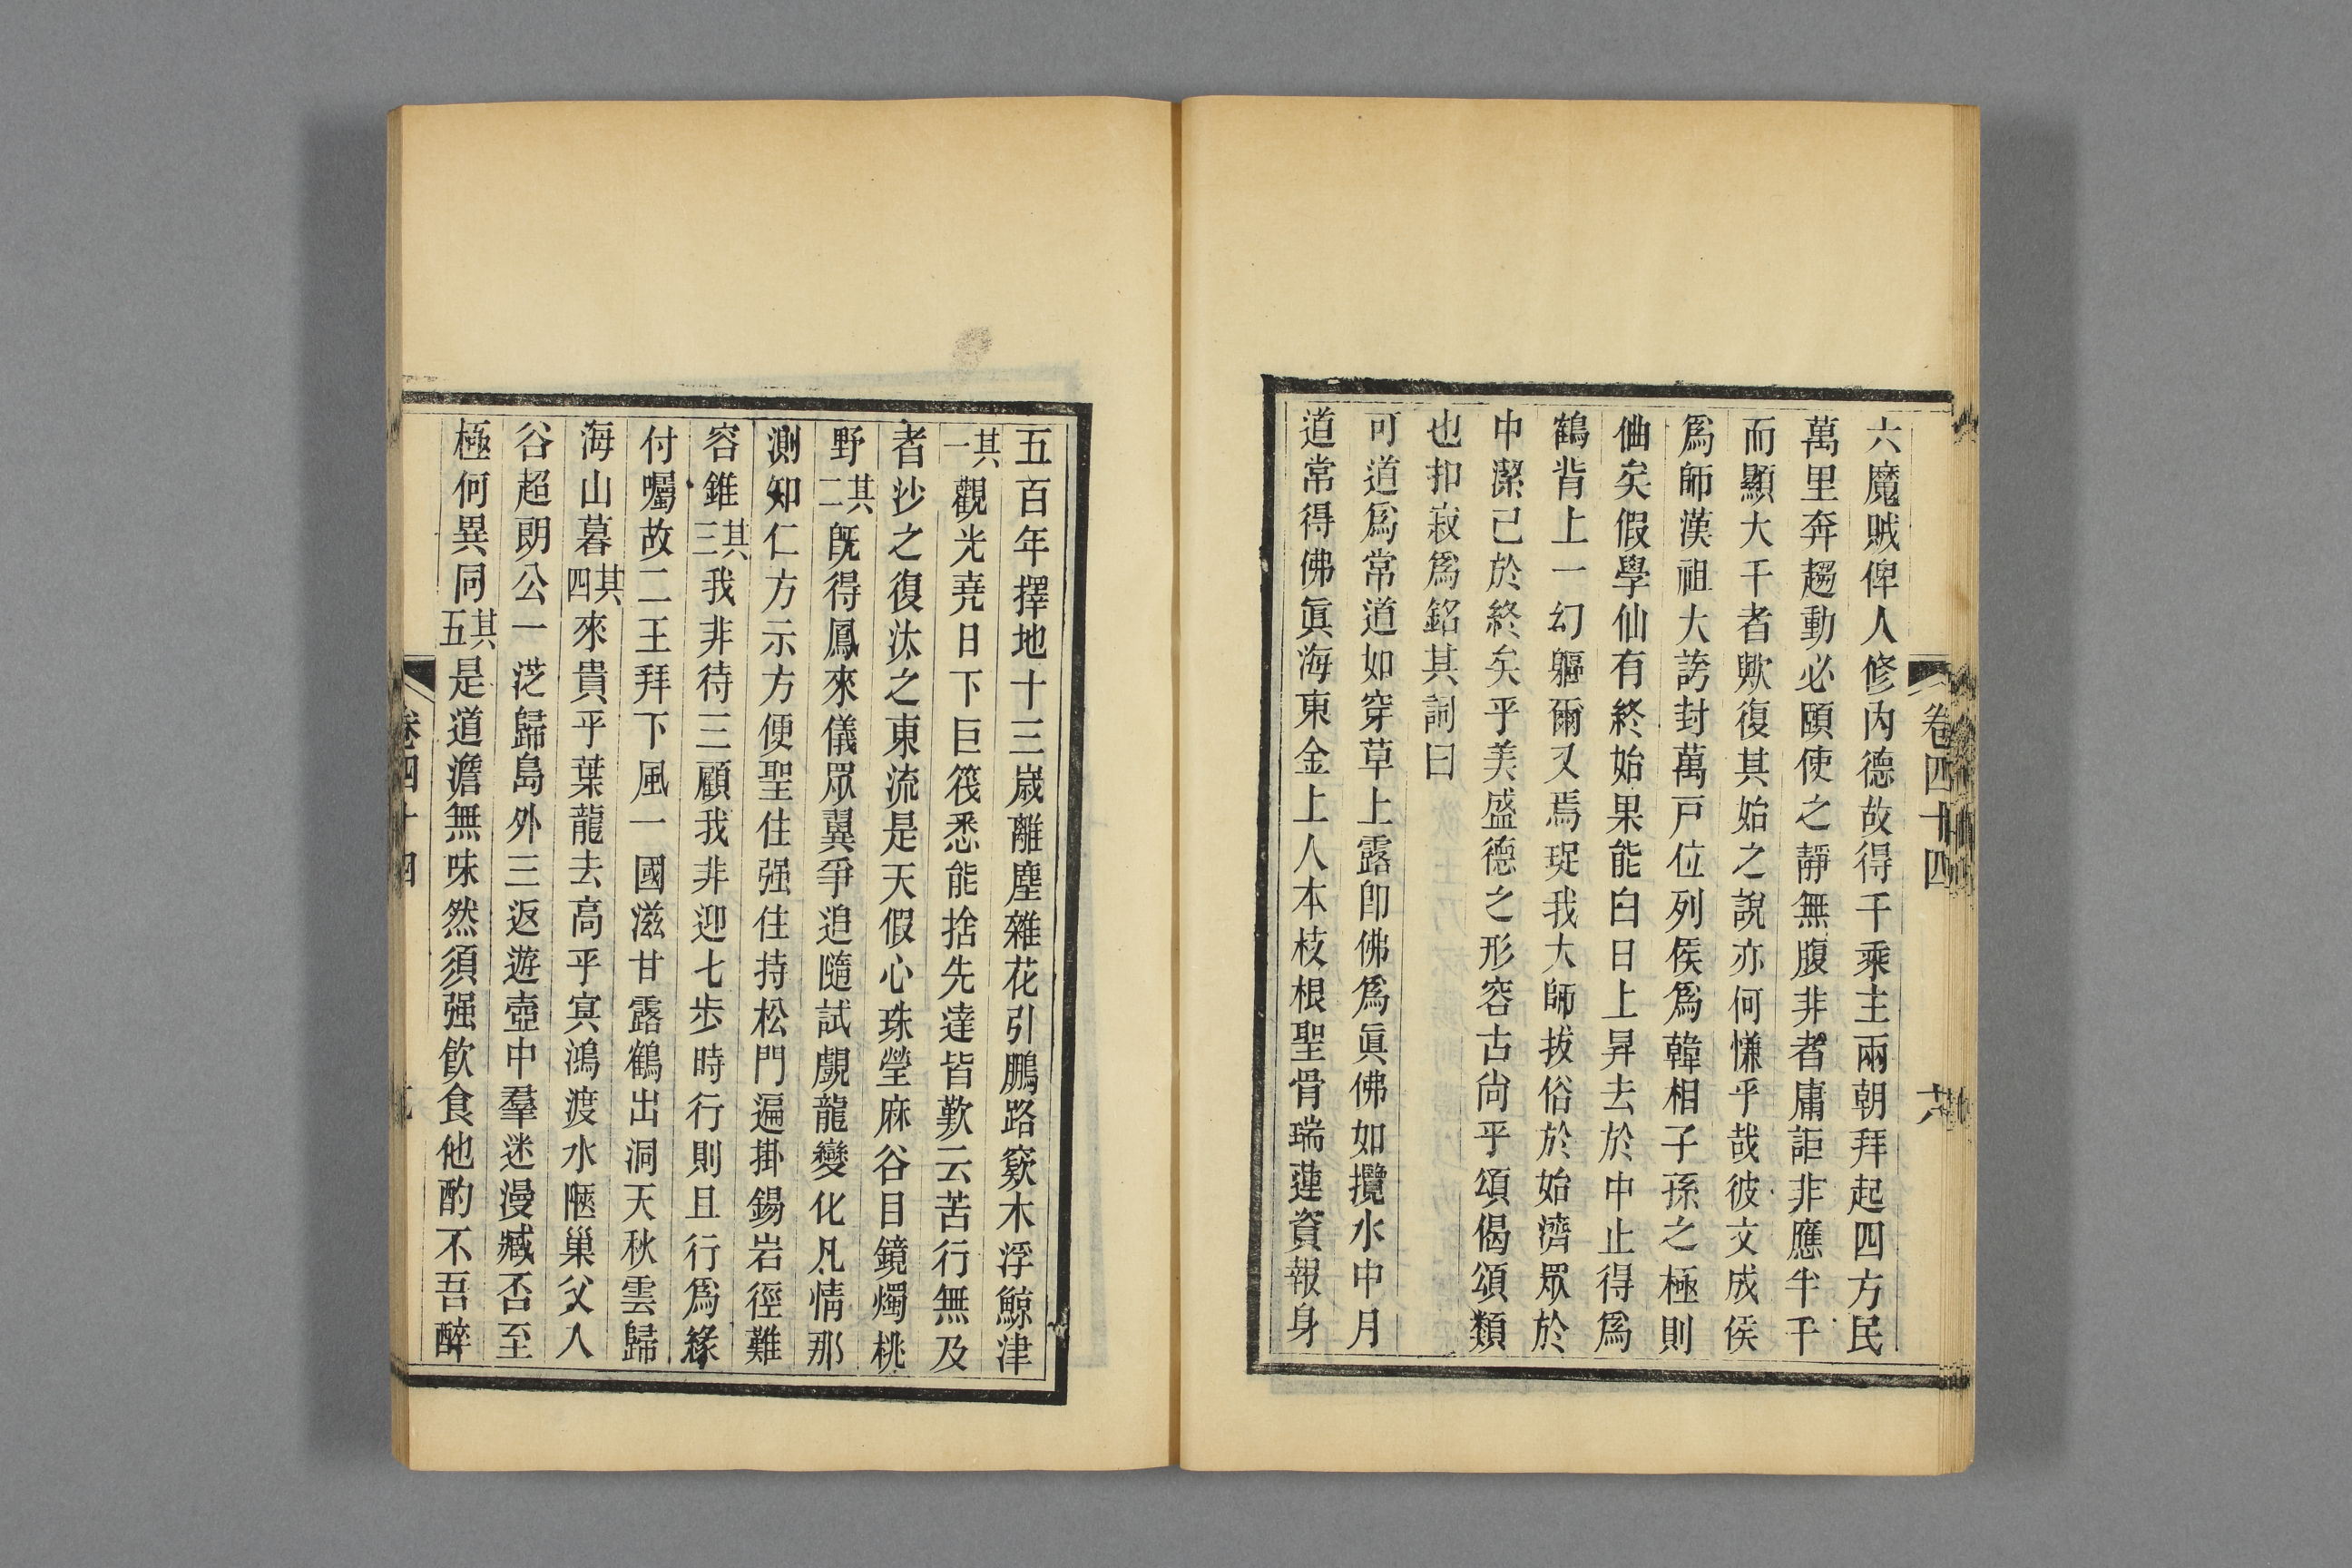 六魔賊俾人修內德故得千乘主兩朝拜起四方民
萬里奔趨動必頤使之靜無腹非者庸詎非應半千
而顯大千者歟復其始之說亦何慊乎哉彼文成侯
爲師漢祖大誇封萬戸位列侯爲韓相子孫之極則
㑋矣假學仙有終始果能白日上昇去於中止得爲
鶴背上一幻軀爾又焉珿我大師拔俗於始濟眾於
中潔己於終矣乎美盛德之形容古尙乎頌偈頌類
也扣寂爲銘其詞曰
可道爲常道如穿草上露卽佛爲眞佛如攬水中月
道常得佛眞海東金上人本枝根聖骨瑞蓮資報身
卷四十四
六
五百年擇地十三歲離塵雜花引鵬路窾木浮鯨津
其一觀光堯日下巨筏悉能捨先達皆歎云苦行無及
者沙之復汰之東流是天假心珠瑩麻谷目鏡燭桃
野其二旣得鳳來儀眾翼爭追隨試覷龍變化凡情那
測知仁方示方便聖住强住持松門遍掛錫岩徑難
容錐其三我非待三顧我非迎七步時行則且行爲緣
付囑故二王拜下風一國滋甘露鶴出洞天秋雲歸
海山暮其四來貴乎葉龍去高乎冥鴻渡水陋巢父入
谷超朗公一從歸島外三返遊壺中羣迷漫臧否至
極何異同其五是道澹無味然須强飮食他酌不吾醉
卷四十四